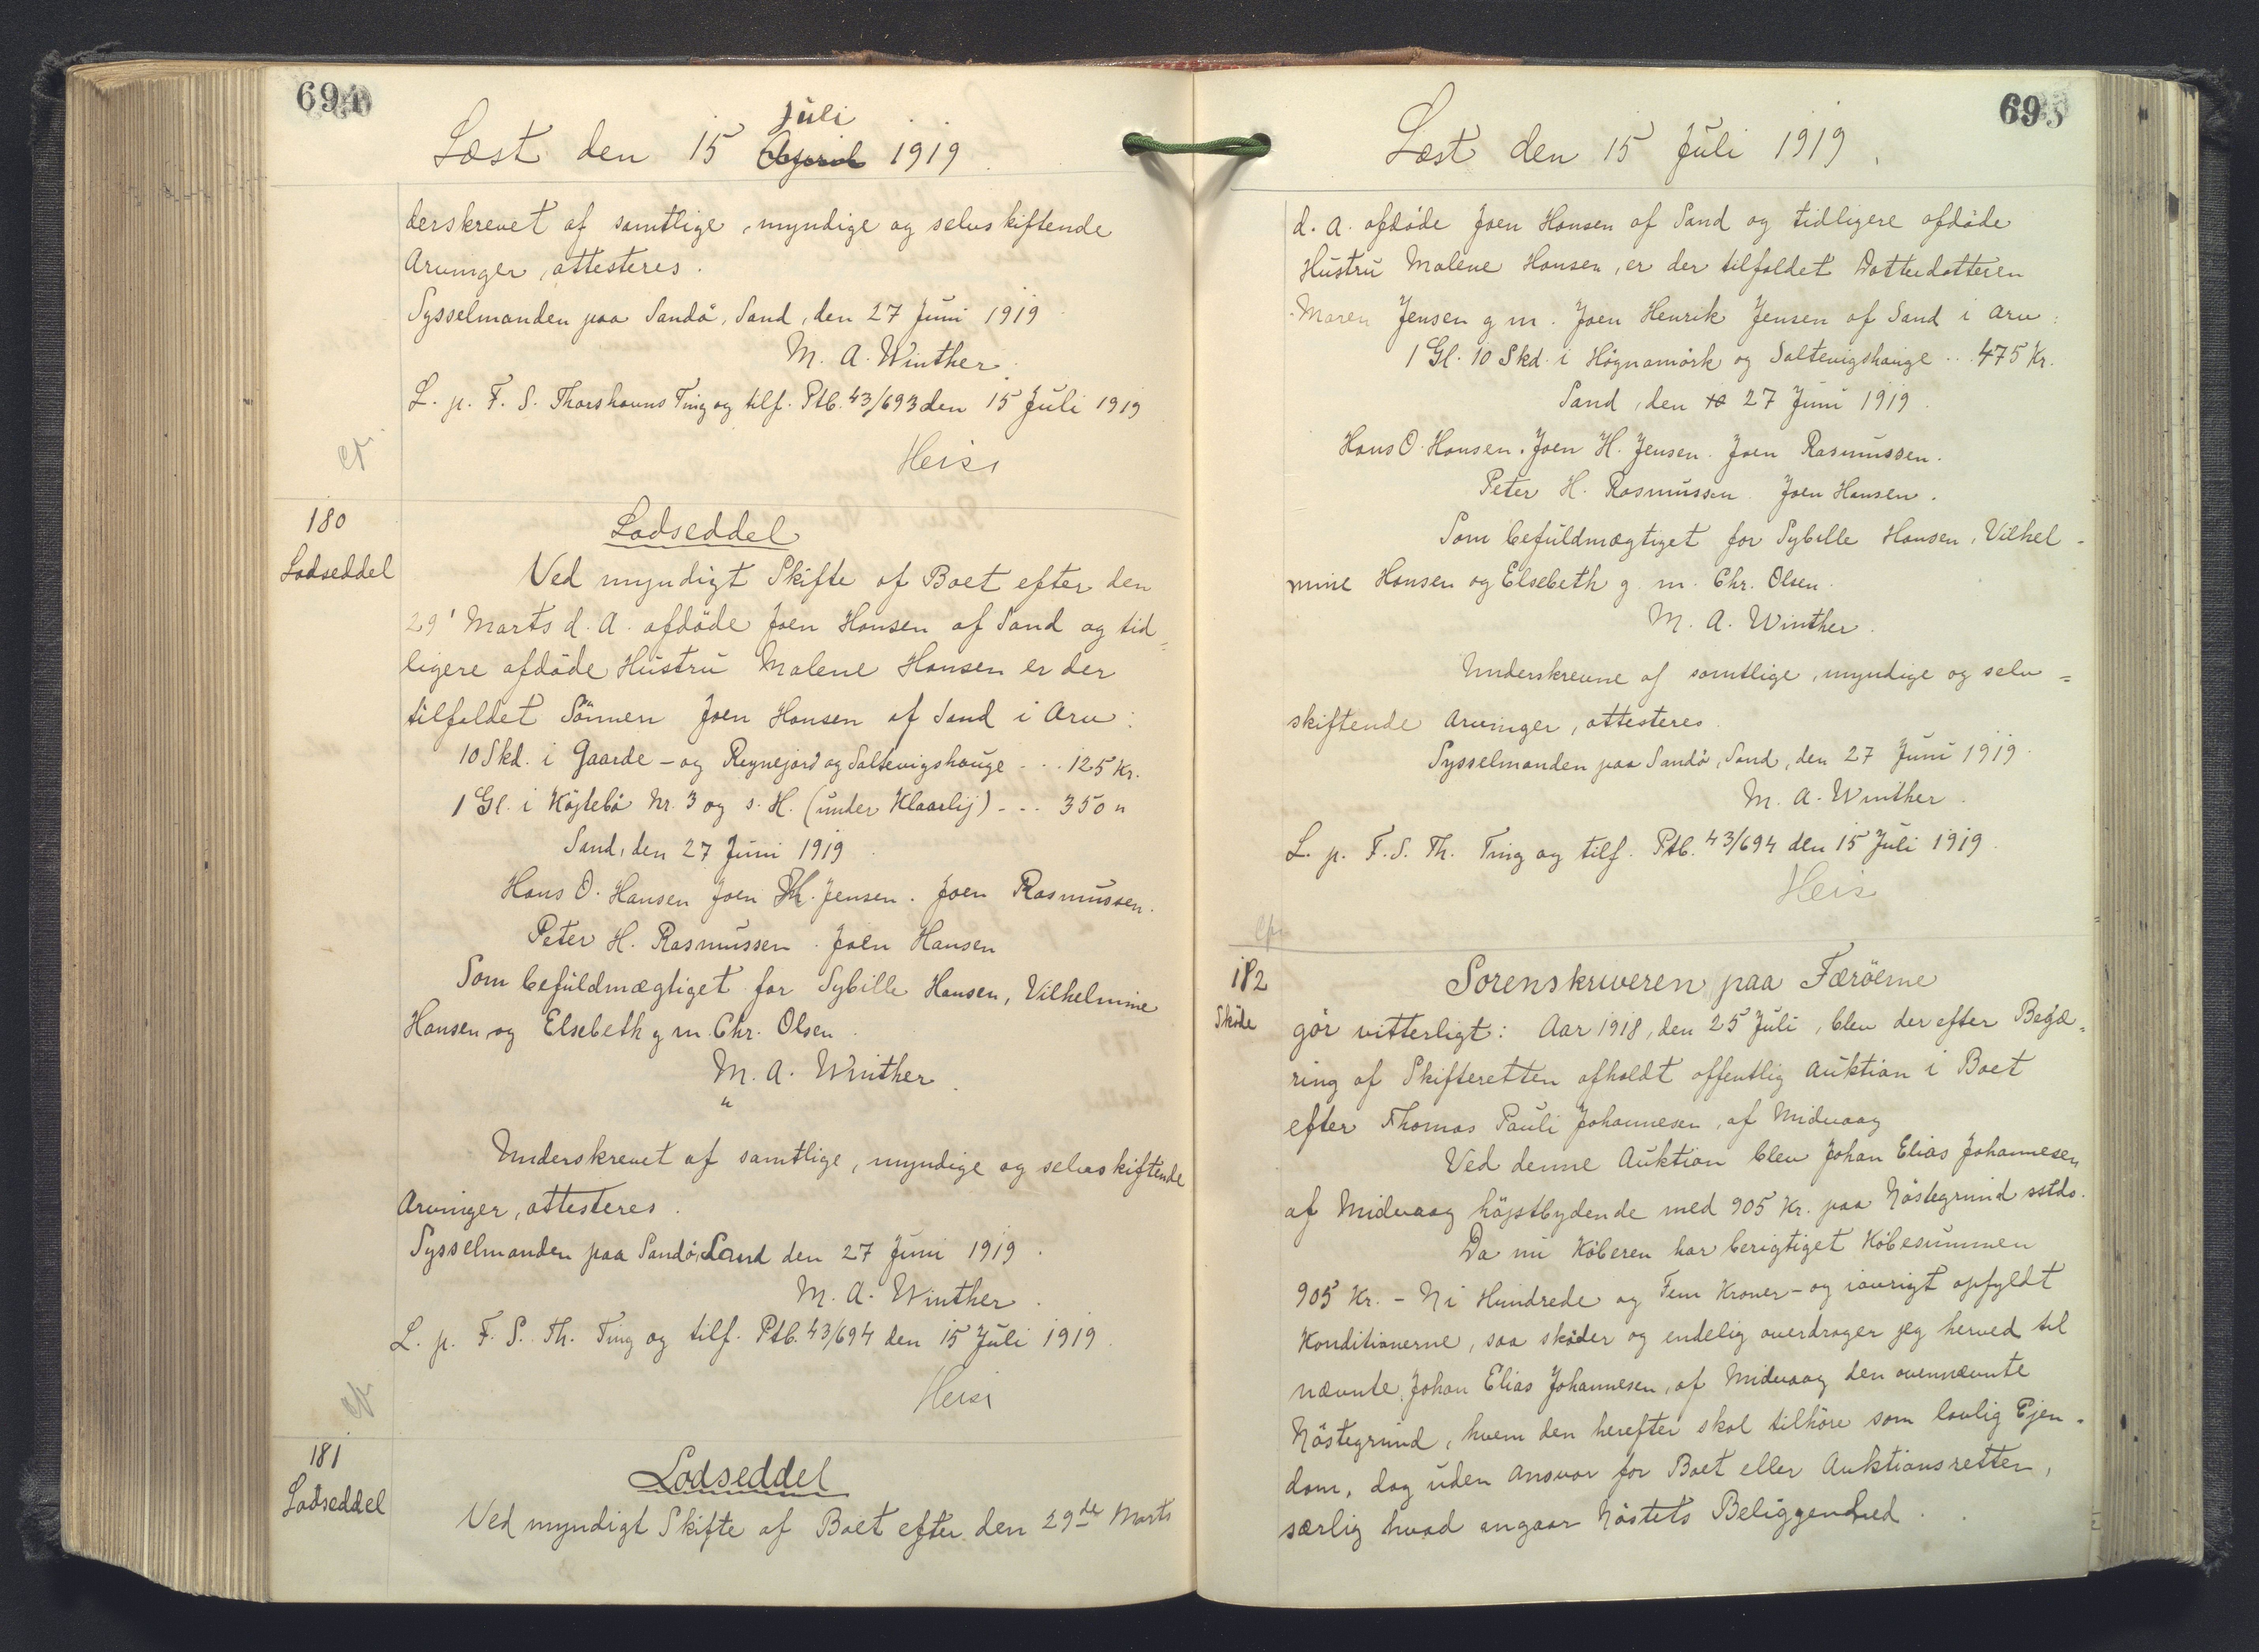 694
Læst den 15 Juli 1919
derskrevet af samtlige, myndige og selvskiftende
Arvinger, attesteres.
Sysselmanden paa Sandö, Sand, den 27 Juni 1919
M. A. Winther
L. p. F. S. Thorshavns Ting og tilf. Ptb. 43/693 den 15 Juli 1919
Heisi
180
Lodseddel
Lodseddel
Ved myndigt Skifte af Boet efter den
29' Marts d. A. afdöde Joen Hansen af Sand og tid=
ligere afdöde Hustru Malene Hansen er der
tilfaldet Sönnen Joen Hansen af Sand i Arv:
10 Skd. i Gaarde- og Reynejord og Saltevigshauge - - - 125 Kr.
1 Gl. i Köjtebö Nr. 3 og s. H. (under Klaarlij) - - - 350 "
Sand, den 27 Juni 1919.
Hans O. Hansen Joen H. Jensen. Joen Rasmussen.
Peter H. Rasmussen. Joen Hansen
Som befuldmægtiget for Sybille Hansen, Vilhelmine
Hansen og Elsebeth g m. Chr. Olsen.
M. A. Winther.
"
Underskrevet af samtlige, myndige og selvskiftende
Arvinger, attesteres.
Sysselmanden paa Sandö, Sand den 27 Juni 1919.
M. A. Winther.
L. p. F. S. Th. Ting og tilf. Ptb. 43/694 den 15 Juli 1919.
Heisi
181
Lodseddel
Lodseddel
Ved myndigt Skifte af Boet efter den 29de Marts
695
Læst den 15 Juli 1919.
d. A. afdöde Joen Hansen af Sand og tidligere afdöde
Hustru Malene Hansen, er der tilfaldet Datterdatteren
Maren Jensen g m. Joen Henrik Jensen af Sand i Arv:
1 Gl. 10 Skd. i Högnamörk og Saltevigshauge ... 475 Kr.
Sand, den 27 Juni 1919.
Hans O. Hansen. Joen H. Jensen. Joen Rasmussen.
Peter H. Rasmussen. Joen Hansen.
Som befuldmægtiget for Sybille Hansen, Vilhel-
mine Hansen og Elsebeth g. m. Chr. Olsen.
M. A. Winther.
Underskrevne af samtlige, myndige og selv=
skiftende Arvinger, attesteres.
Sysselmanden paa Sandö, Sand, den 27 Juni 1919.
M. A. Winther.
L. p. F. S. Th. Ting og tilf. Ptb. 43/694 den 15 Juli 1919.
Heisi
182
Sköde
Sorenskriveren paa Færöerne
gör vitterligt: Aar 1918, den 25 Juli, blev der efter Begæ=
ring af Skifteretten afholdt offentlig Auktion i Boet
efter Thomas Pauli Johannesen, af Midvaag
Ved denne Auktion blev Johan Elias Johannesen
af Midvaag höjstbydende med 905 Kr. paa Nöstegrund sstds.
Da nu Köberen har berigtiget Köbesummen
905 Kr. - Ni Hundrede og Fem Kroner - og iövrigt opfyldt
Konditionerne, saa sköder og endelig overdrager jeg herved til
nævnte Johan Elias Johannesen, af Midvaag den ovennævnte
Nöstegrund, hvem den herefter skal tilhöre som lovlig Ejen-
dom, dog uden Ansvar for Boet eller Auktionsretten,
særlig hvad angaar Nöstets Beliggenhed.